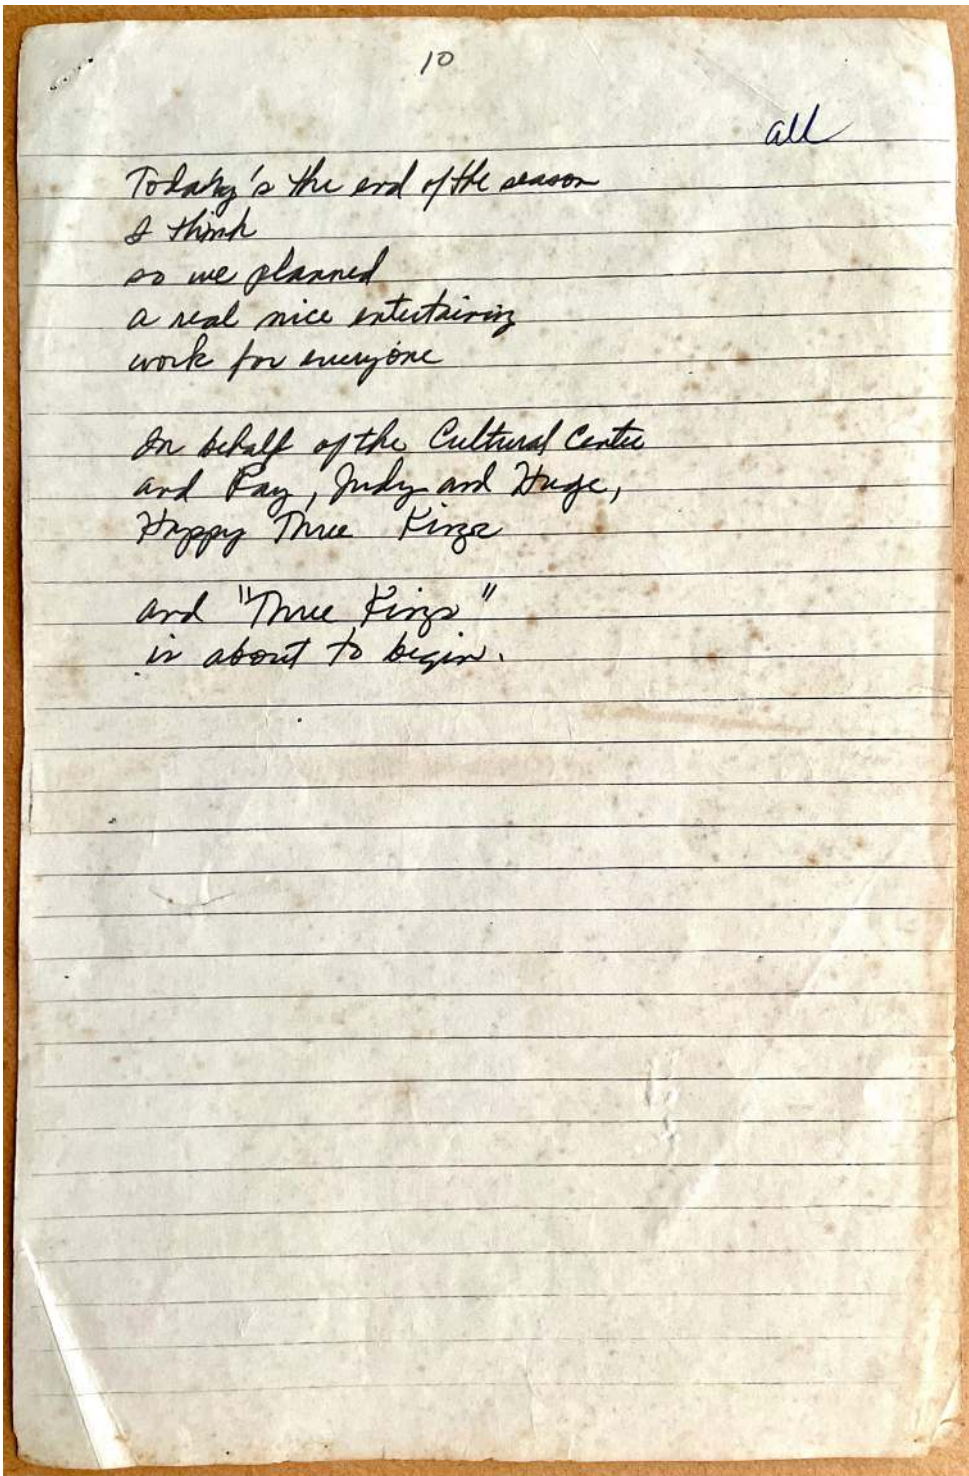 10
all
Today's the end of the season
I think
so we planned
a real nice entertaining
work for everyone
In behalf of the Cultural Center
and Ray, Judy and Huge,
Happy Three Kings
and "Three Kings"
is about to begin.